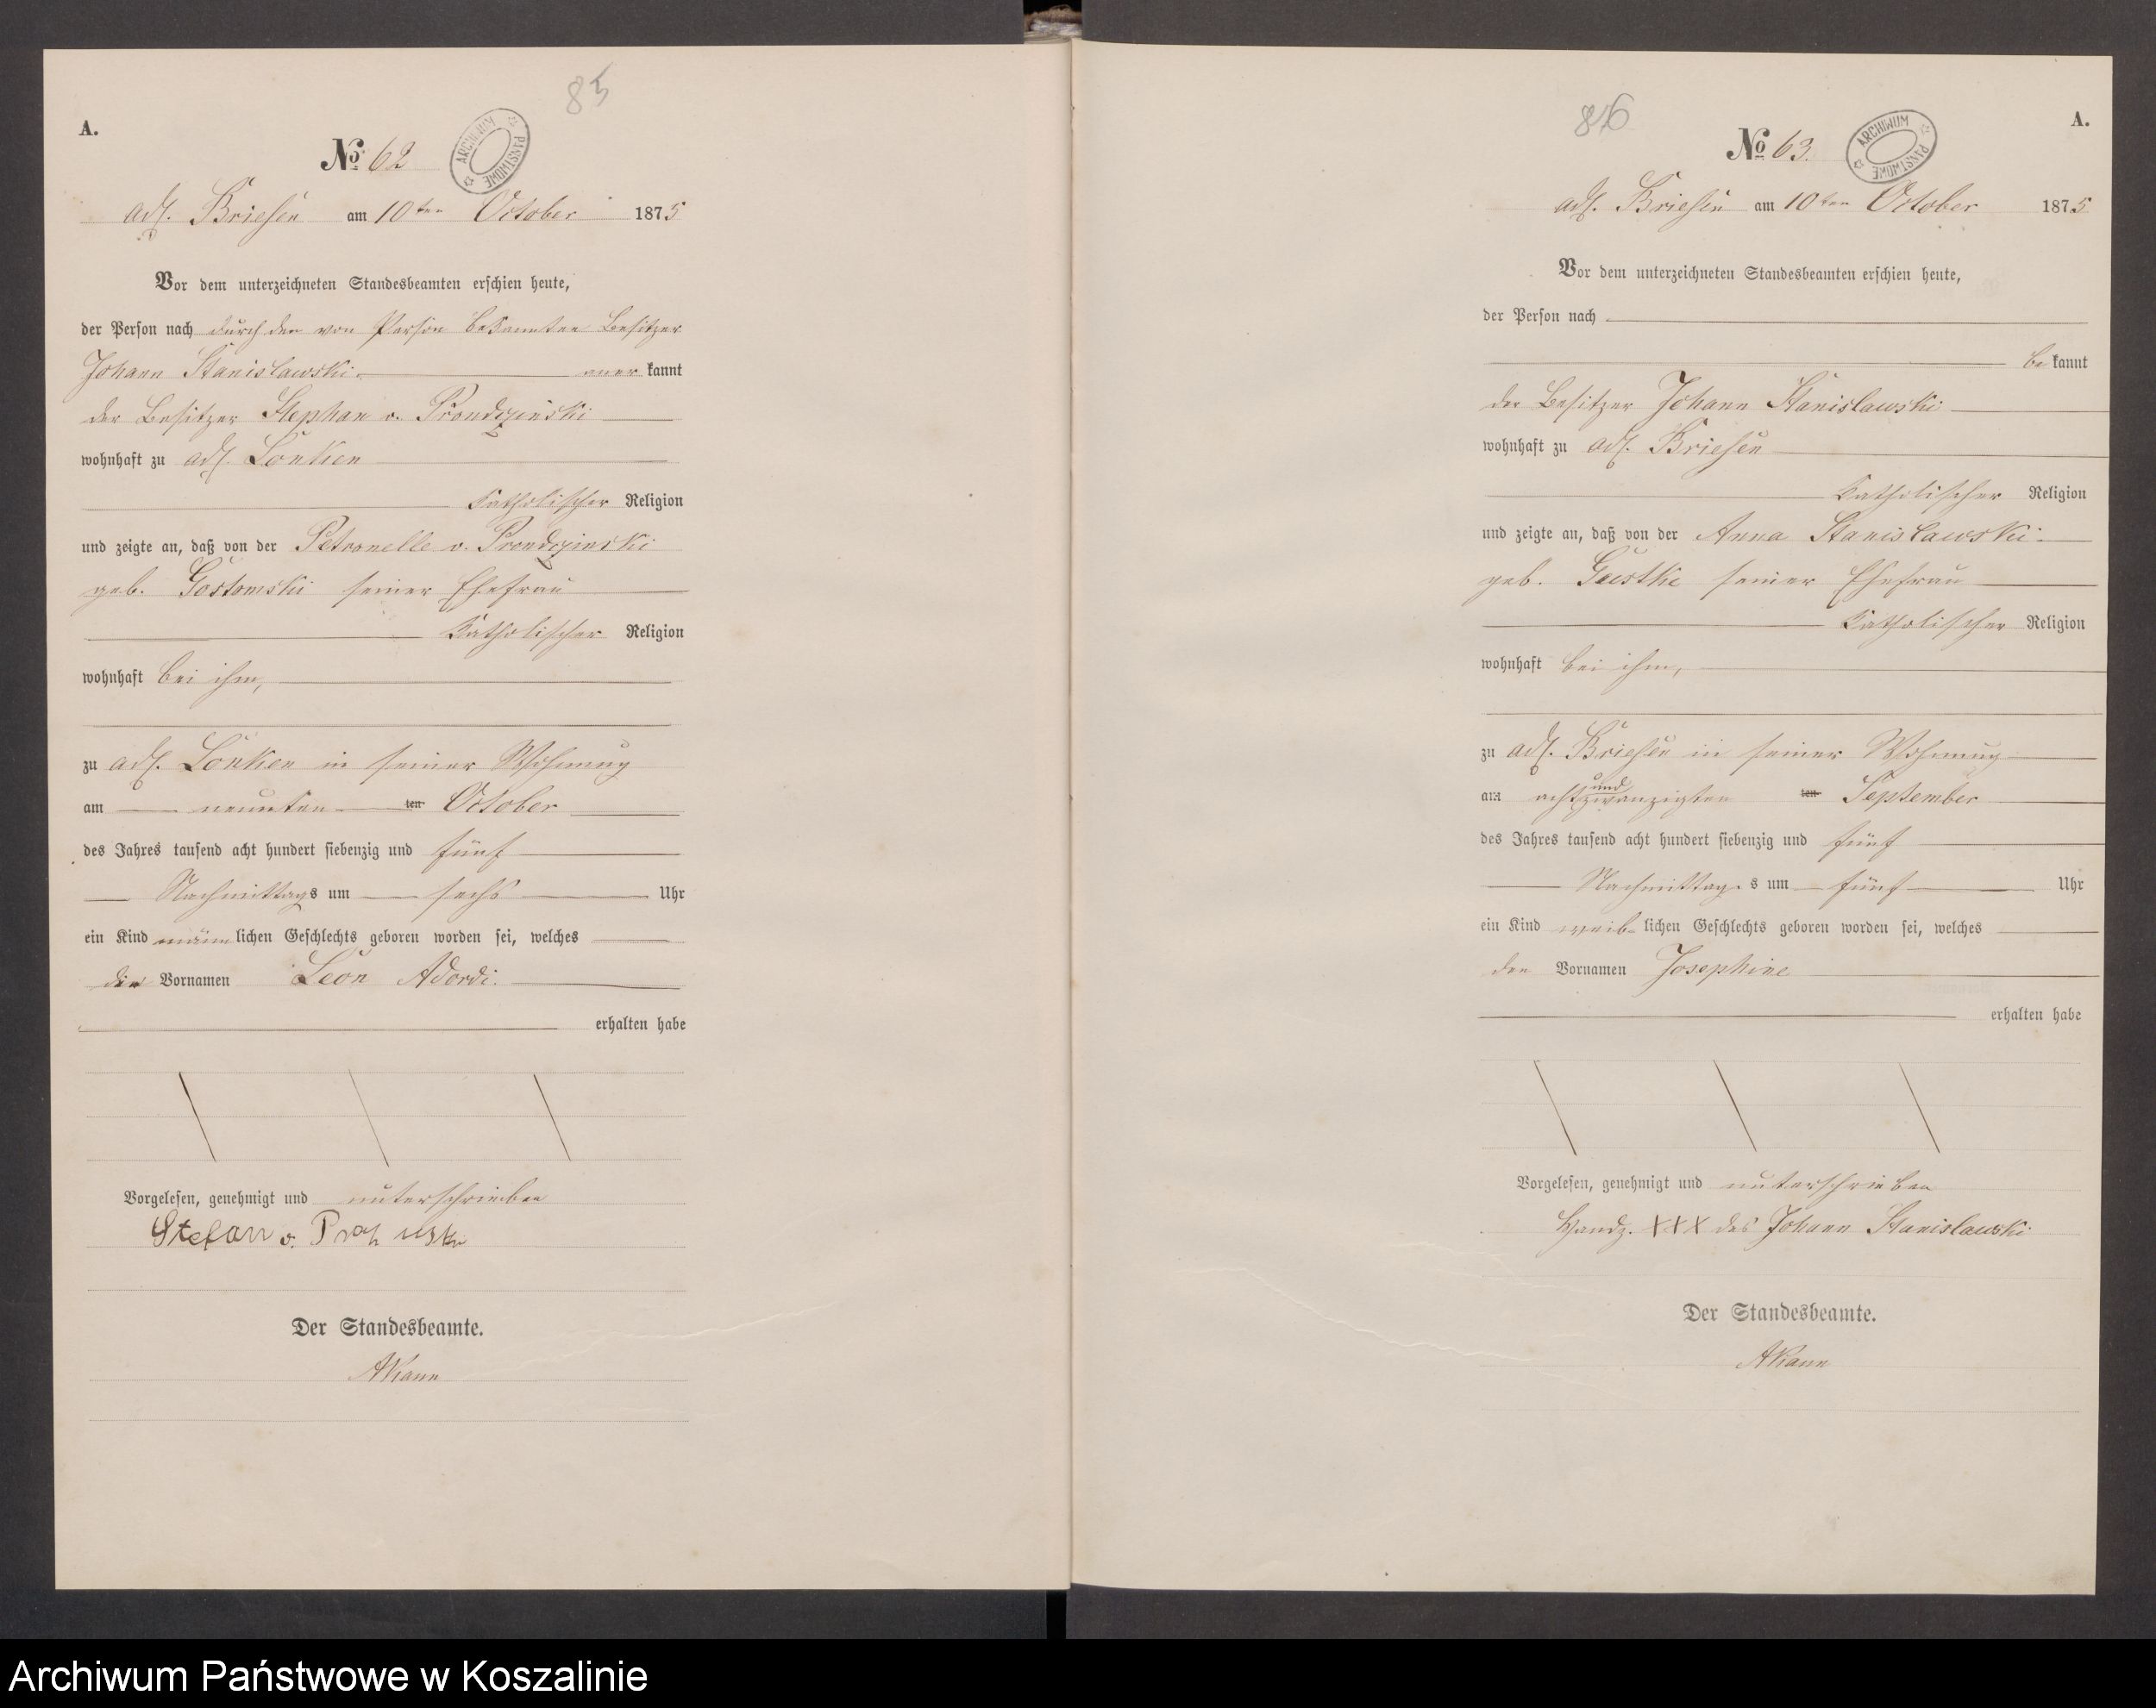 85
A.
No 62
ARCHIWUM PAŃSTWOWE
adl. Briesen am 10ten October 1875
Vor dem unterzeichneten Standesbeamten erschien heute,
der Person nach durch den von Person bekannten Besitzer
Johann Stanislawski anerkannt
der Besitzer Stephan v. Prondzinski
wohnhaft zu adl. Lonken
katholischer Religion
und zeigte an, daß von der Petronelle v. Prondzinski
geb. Gostomski seiner Ehefrau
katholischer Religion
wohnhaft bei ihm,
zu adl. Lonken in seiner Wohnung
am neunten ten October
des Jahres tausend acht hundert siebenzig und fünf
Nachmittags um sechs Uhr
ein Kind männlichen Geschlechts geboren worden sei, welches
die Vornamen Leon Adordi
erhalten habe
Vorgelesen, genehmigt und unterschrieben
Stefan v.
Der Standesbeamte.
AKann
86
A.
No 63.
ARCHIWUM PAŃSTWOWE
adl. Briesen am 10ten October 1875
Vor dem unterzeichneten Standesbeamten erschien heute,
der Person nach
bekannt
der Besitzer Johann Stanislawski
wohnhaft zu adl. Briesen
katholischer Religion
und zeigte an, daß von der Anna Stanislawski
geb. Guestke seiner Ehefrau
katholischer Religion
wohnhaft bei ihm,
zu adl. Briesen in seiner Wohnung
am achtundzwanzigten ten September
des Jahres tausend acht hundert siebenzig und fünf
Nachmittags um fünf Uhr
ein Kind weiblichen Geschlechts geboren worden sei, welches
den Vornamen Josephine
erhalten habe
Vorgelesen, genehmigt und unterschrieben
Handz. XXX des Johann Stanislawski
Der Standesbeamte.
AKann
Archiwum Państwowe w Koszalinie